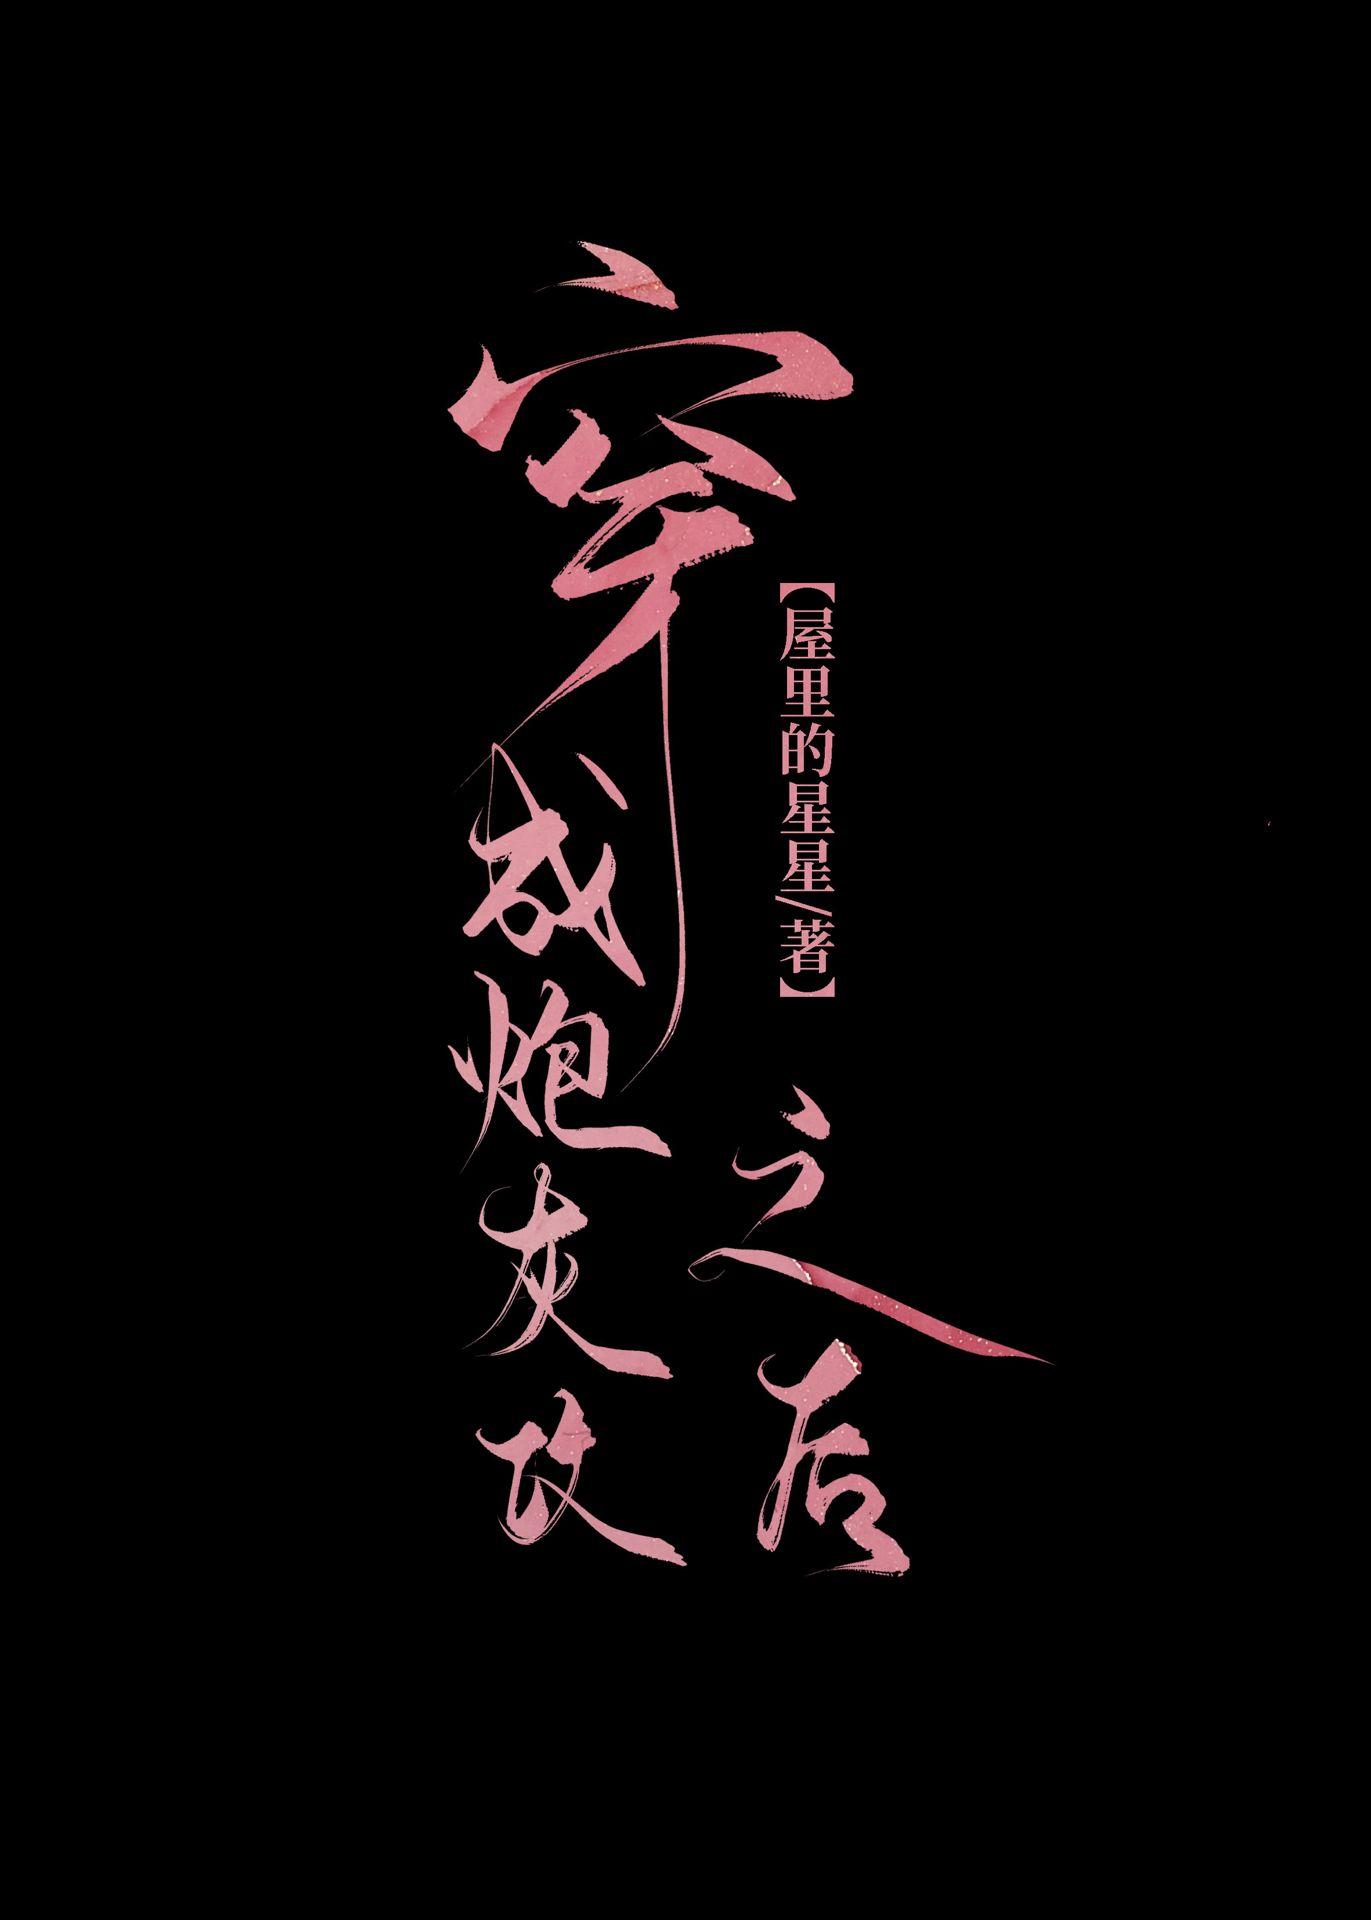 穿成炮灰攻
之后
【屋里的星星/著】